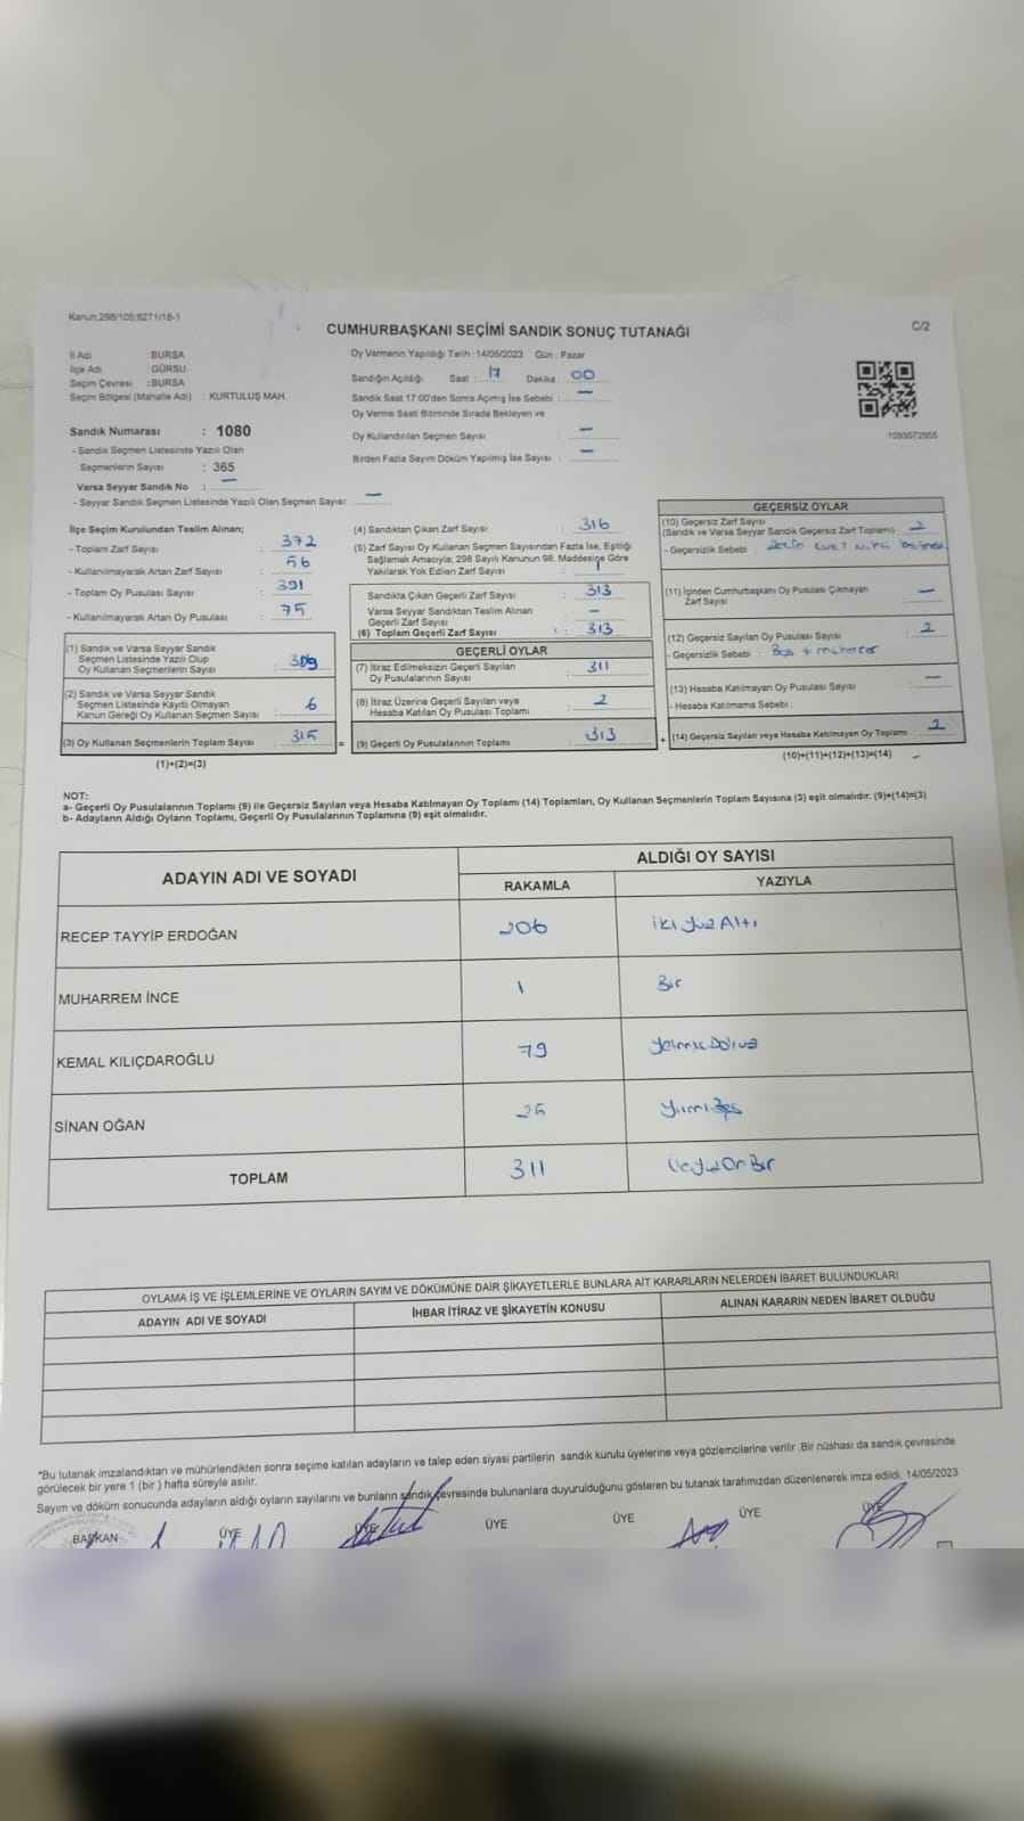 Kanun:298/105;6271/18-1
C/2
CUMHURBAŞKANI SEÇİMİ SANDIK SONUÇ TUTANAĞI
İl Adı :BURSA
İlçe Adı :GÜRSU
Seçim Çevresi :BURSA
Seçim Bölgesi (Mahalle Adı) : KURTULUŞ MAH.
Sandık Numarası : 1080
- Sandık Seçmen Listesinde Yazılı Olan
Seçmenlerin Sayısı : 365
Varsa Seyyar Sandık No : —
- Seyyar Sandık Seçmen Listesinde Yazılı Olan Seçmen Sayısı: —
Oy Vermenin Yapıldığı Tarih :14/05/2023 Gün : Pazar
Sandığın Açıldığı Saat : 17 Dakika : 00
Sandık Saat 17:00'den Sonra Açılmış İse Sebebi : —
Oy Verme Saati Bitiminde Sırada Bekleyen ve
Oy Kullandırılan Seçmen Sayısı : —
Birden Fazla Sayım Döküm Yapılmış İse Sayısı : —
İlçe Seçim Kurulundan Teslim Alınan;
- Toplam Zarf Sayısı : 372
- Kullanılmayarak Artan Zarf Sayısı : 56
- Toplam Oy Pusulası Sayısı : 391
- Kullanılmayarak Artan Oy Pusulası : 75
(1) Sandık ve Varsa Seyyar Sandık
Seçmen Listesinde Yazılı Olup
Oy Kullanan Seçmenlerin Sayısı : 309
(2) Sandık ve Varsa Seyyar Sandık
Seçmen Listesinde Kayıtlı Olmayan
Kanun Gereği Oy Kullanan Seçmen Sayısı : 6
(3) Oy Kullanan Seçmenlerin Toplam Sayısı : 315
(1)+(2)=(3)
(4) Sandıktan Çıkan Zarf Sayısı : 316
(5) Zarf Sayısı Oy Kullanan Seçmen Sayısından Fazla İse, Eşitliği
Sağlamak Amacıyla; 298 Sayılı Kanunun 98. Maddesine Göre
Yakılarak Yok Edilen Zarf Sayısı : 1
Sandıkta Çıkan Geçerli Zarf Sayısı : 313
Varsa Seyyar Sandıktan Teslim Alınan
Geçerli Zarf Sayısı : —
(6) Toplam Geçerli Zarf Sayısı : 313
GEÇERLİ OYLAR
(7) İtiraz Edilmeksizin Geçerli Sayılan
Oy Pusulalarının Sayısı : 311
(8) İtiraz Üzerine Geçerli Sayılan veya
Hesaba Katılan Oy Pusulası Toplamı : 2
= (9) Geçerli Oy Pusulalarının Toplamı : 313
GEÇERSİZ OYLAR
(10) Geçersiz Zarf Sayısı
(Sandık ve Varsa Seyyar Sandık Geçersiz Zarf Toplamı) : 2
- Geçersizlik Sebebi :
(11) İçinden Cumhurbaşkanı Oy Pusulası Çıkmayan
Zarf Sayısı : —
(12) Geçersiz Sayılan Oy Pusulası Sayısı : 2
- Geçersizlik Sebebi : Boş + mühürler
(13) Hesaba Katılmayan Oy Pusulası Sayısı : —
- Hesaba Katılmama Sebebi :
+ (14) Geçersiz Sayılan veya Hesaba Katılmayan Oy Toplamı : 2
(10)+(11)+(12)+(13)=(14)
NOT:
a- Geçerli Oy Pusulalarının Toplamı (9) ile Geçersiz Sayılan veya Hesaba Katılmayan Oy Toplamı (14) Toplamları, Oy Kullanan Seçmenlerin Toplam Sayısına (3) eşit olmalıdır. (9)+(14)=(3)
b- Adayların Aldığı Oyların Toplamı, Geçerli Oy Pusulalarının Toplamına (9) eşit olmalıdır.
ADAYIN ADI VE SOYADI
ALDIĞI OY SAYISI
RAKAMLA YAZIYLA
RECEP TAYYİP ERDOĞAN 206 iki yüz Altı
MUHARREM İNCE 1 Bir
KEMAL KILIÇDAROĞLU 79 Yetmiş Dokuz
SİNAN OĞAN 25 Yirmi Beş
TOPLAM 311 Üç yüz On Bir
OYLAMA İŞ VE İŞLEMLERİNE VE OYLARIN SAYIM VE DÖKÜMÜNE DAİR ŞİKAYETLERLE BUNLARA AİT KARARLARIN NELERDEN İBARET BULUNDUKLARI
ADAYIN ADI VE SOYADI İHBAR İTİRAZ VE ŞİKAYETİN KONUSU ALINAN KARARIN NEDEN İBARET OLDUĞU
*Bu tutanak imzalandıktan ve mühürlendikten sonra seçime katılan adayların ve talep eden siyasi partilerin sandık kurulu üyelerine veya gözlemcilerine verilir. Bir nüshası da sandık çevresinde
görülecek bir yere 1 (bir) hafta süreyle asılır.
Sayım ve döküm sonucunda adayların aldığı oyların sayılarını ve bunların sandık çevresinde bulunanlara duyurulduğunu gösteren bu tutanak tarafımızdan düzenlenerek imza edildi. 14/05/2023
BAŞKAN ÜYE ÜYE ÜYE ÜYE ÜYE ÜYE